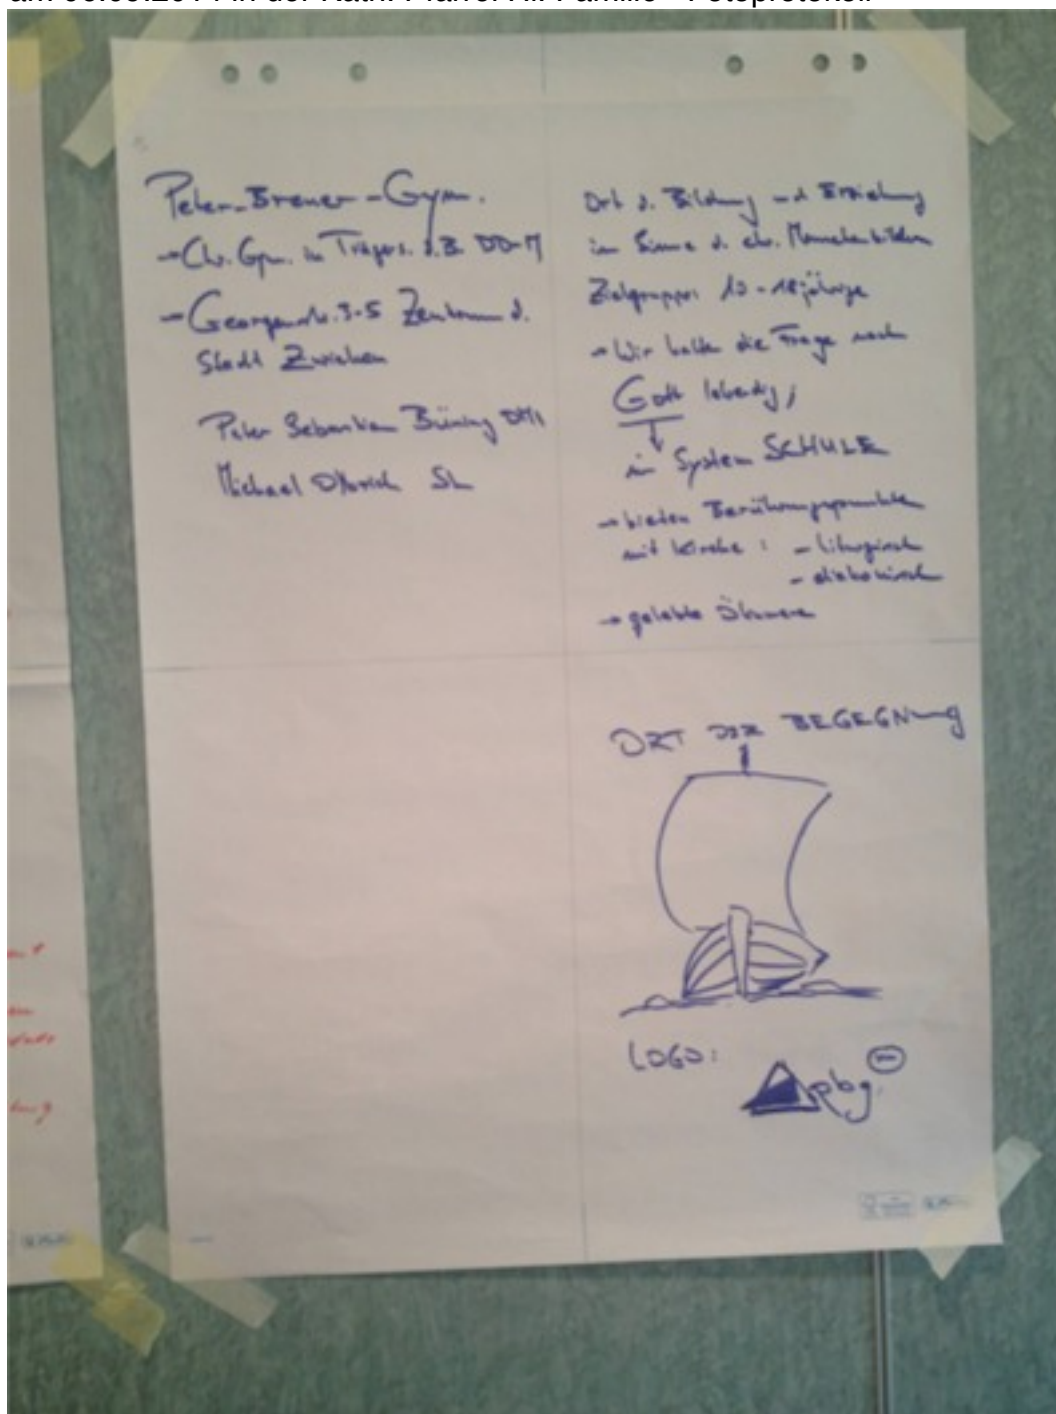 Peter-Breuer-Gym.
→ Chr. Gym. in Trägers. d. B. DD-M
→ Georgenstr. 3-5 Zentrum d.
Stadt Zwickau
Peter Sebastian Brüning
Michael SL
Ort d. Bildung und Erziehung
im Sinne d. chr. Menschenbildes
Zielgruppe: 10-18jährige
→ Wir halten die Frage nach
Gott lebendig,
im System SCHULE
→ bieten Berührungspunkte
mit Kirche: - liturgisch
- diakonisch
→ gelebte Ökumene
ORT DER BEGEGNung
LOGO:
pbg